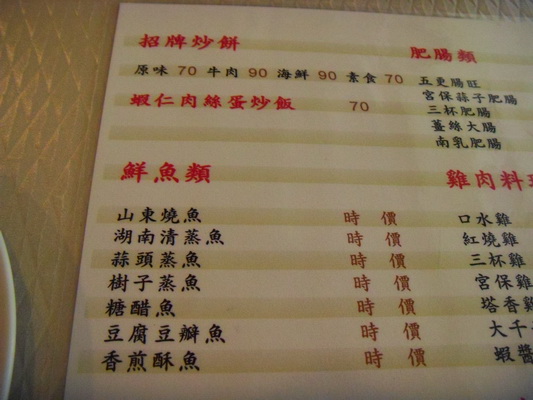 招牌炒餅
原味 70 牛肉 90 海鮮 90 素食 70
蝦仁肉絲蛋炒飯 70
鮮魚類
山東燒魚 時價
湖南清蒸魚 時價
蒜頭蒸魚 時價
樹子蒸魚 時價
糖醋魚 時價
豆腐豆瓣魚 時價
香煎酥魚 時價
肥腸類
五更腸旺
宮保蒜子肥腸
三杯肥腸
薑絲大腸
南乳肥腸
雞肉料理
口水雞
紅燒雞
三杯雞
宮保雞
塔香雞
大千
蝦醬